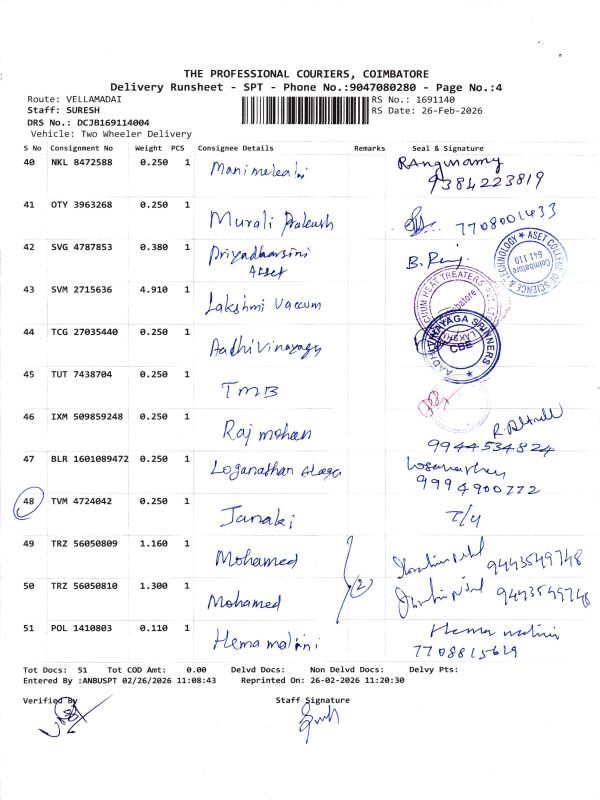 THE PROFESSIONAL COURIERS, COIMBATORE
Delivery Runsheet - SPT - Phone No.:9047080280 - Page No.:4
Route: VELLAMADAI RS No.: 1691140
Staff: SURESH RS Date: 26-Feb-2026
DRS No.: DCJB169114004
Vehicle: Two Wheeler Delivery
S No Consignment No Weight PCS Consignee Details Remarks Seal & Signature
40 NKL 8472588 0.250 1 Manimekalai
9384223819
41 OTY 3963268 0.250 1 Murali Prakash 7708001433
42 SVG 4787853 0.380 1 Priyadharsini
Asset
ASET COLLEGE OF SCIENCE & TECHNOLOGY Coimbatore 641 110
43 SVM 2715636 4.910 1 Lakshmi Vaccum
44 TCG 27035440 0.250 1 Aadhi Vinayaga
AADHI VINAYAGA SPINNERS CBE
45 TUT 7438704 0.250 1 TMB
46 IXM 509859248 0.250 1 Raj mohan
9944534824
47 BLR 1601089472 0.250 1 Loganathan
9994900772
48 TVM 4724042 0.250 1 Janaki
49 TRZ 56050809 1.160 1 Mohamed 9443549748
(2)
50 TRZ 56050810 1.300 1 Mohamed 9443549748
51 POL 1410803 0.110 1 Hema malini Hema malini
7708815619
Tot Docs: 51 Tot COD Amt: 0.00 Delvd Docs: Non Delvd Docs: Delvy Pts:
Entered By :ANBUSPT 02/26/2026 11:08:43 Reprinted On: 26-02-2026 11:20:30
Verified By Staff Signature